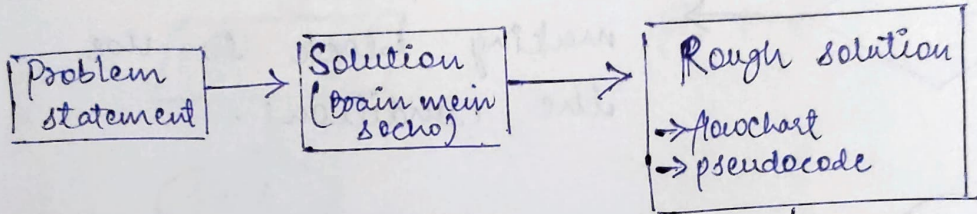 Problem
statement
Solution
(Brain mein
socho)
Rough solution
→ flowchart
→ pseudocode